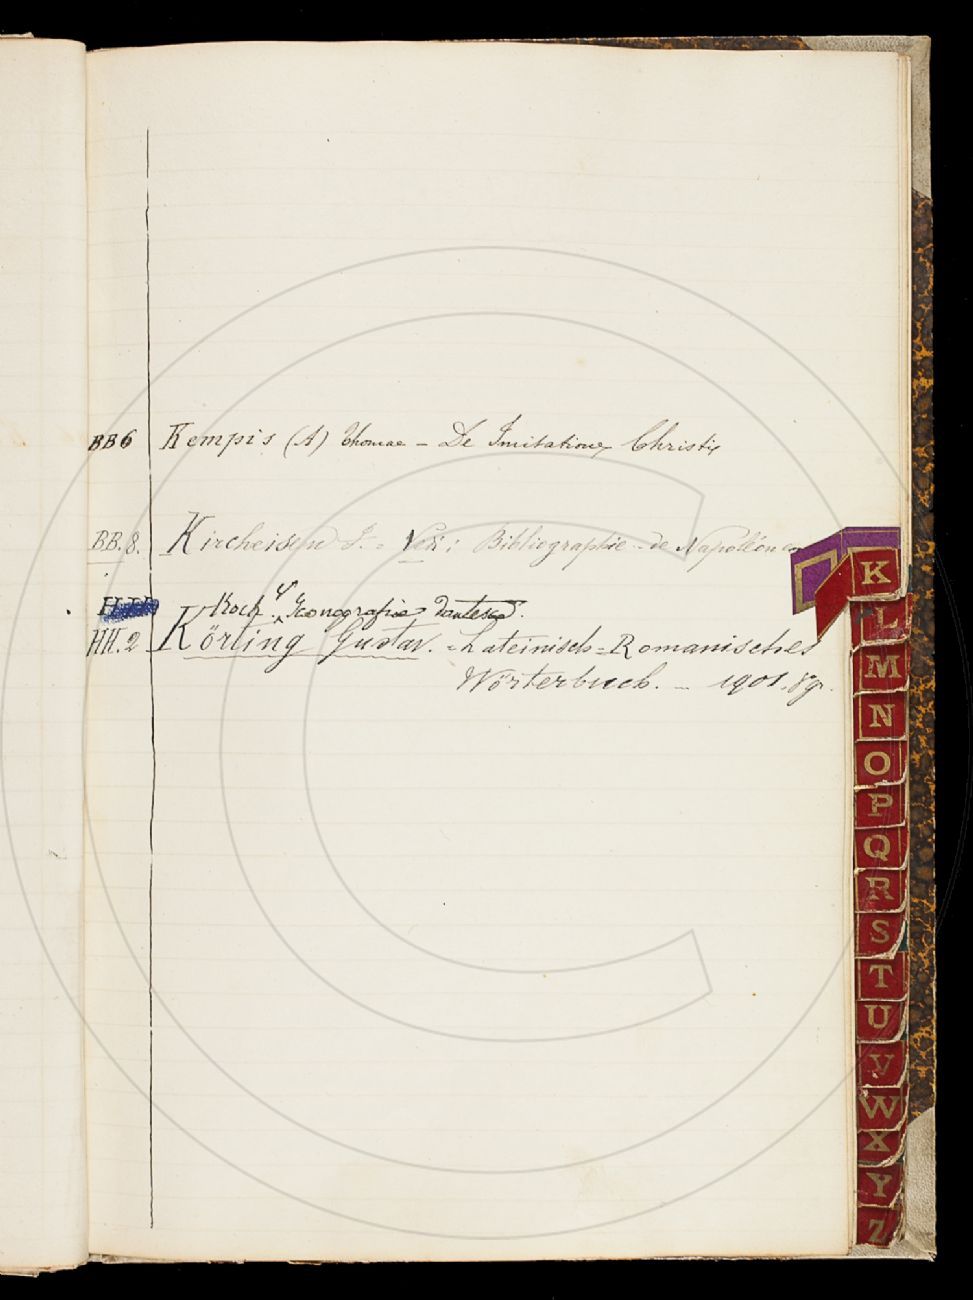 BB6 Kempis (A) Thomae - De Imitatione Christi
BB. 8. Kircheisen F. - Vedi: Bibliographie de Napoléon
Koch Iconografia dantesca.
HH. 2 Körting Gustav. - Lateinisch-Romanisches
Wörterbuch. - 1901. 8gr.
K
L
M
N
O
P
Q
R
S
T
U
V
W
X
Y
Z